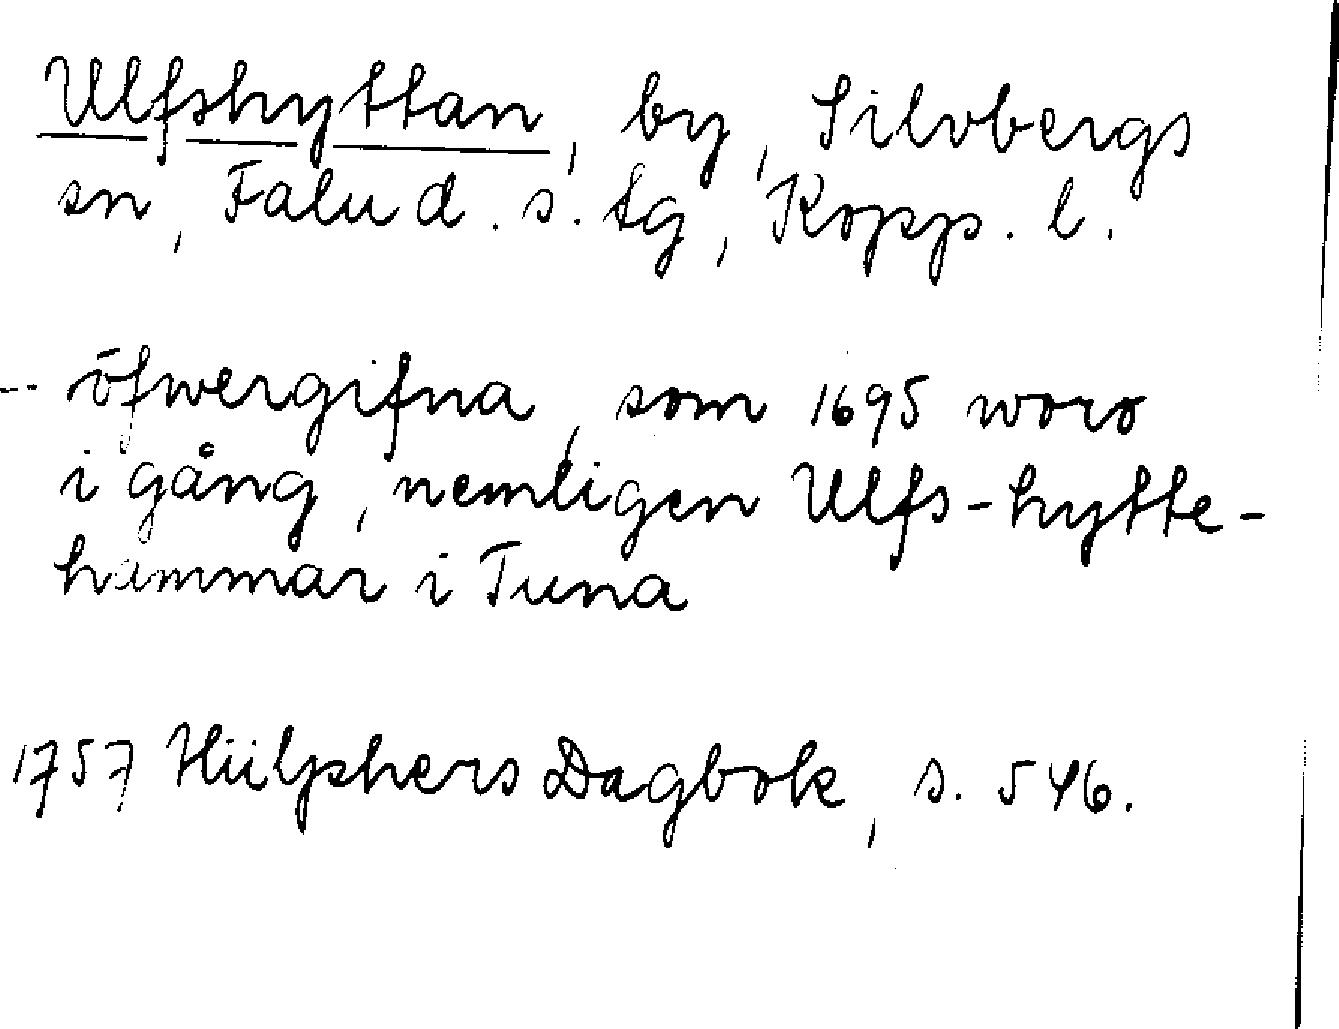 Ulfshyttan, by, Silvbergs
sn, Falu d. s. tg, Kopp. l.
-- öfwergifna, som 1695 woro
i gång, nemligen Ulfs-hytte-
hammar i Tuna
1757 Hülphers Dagbok, s. 546.